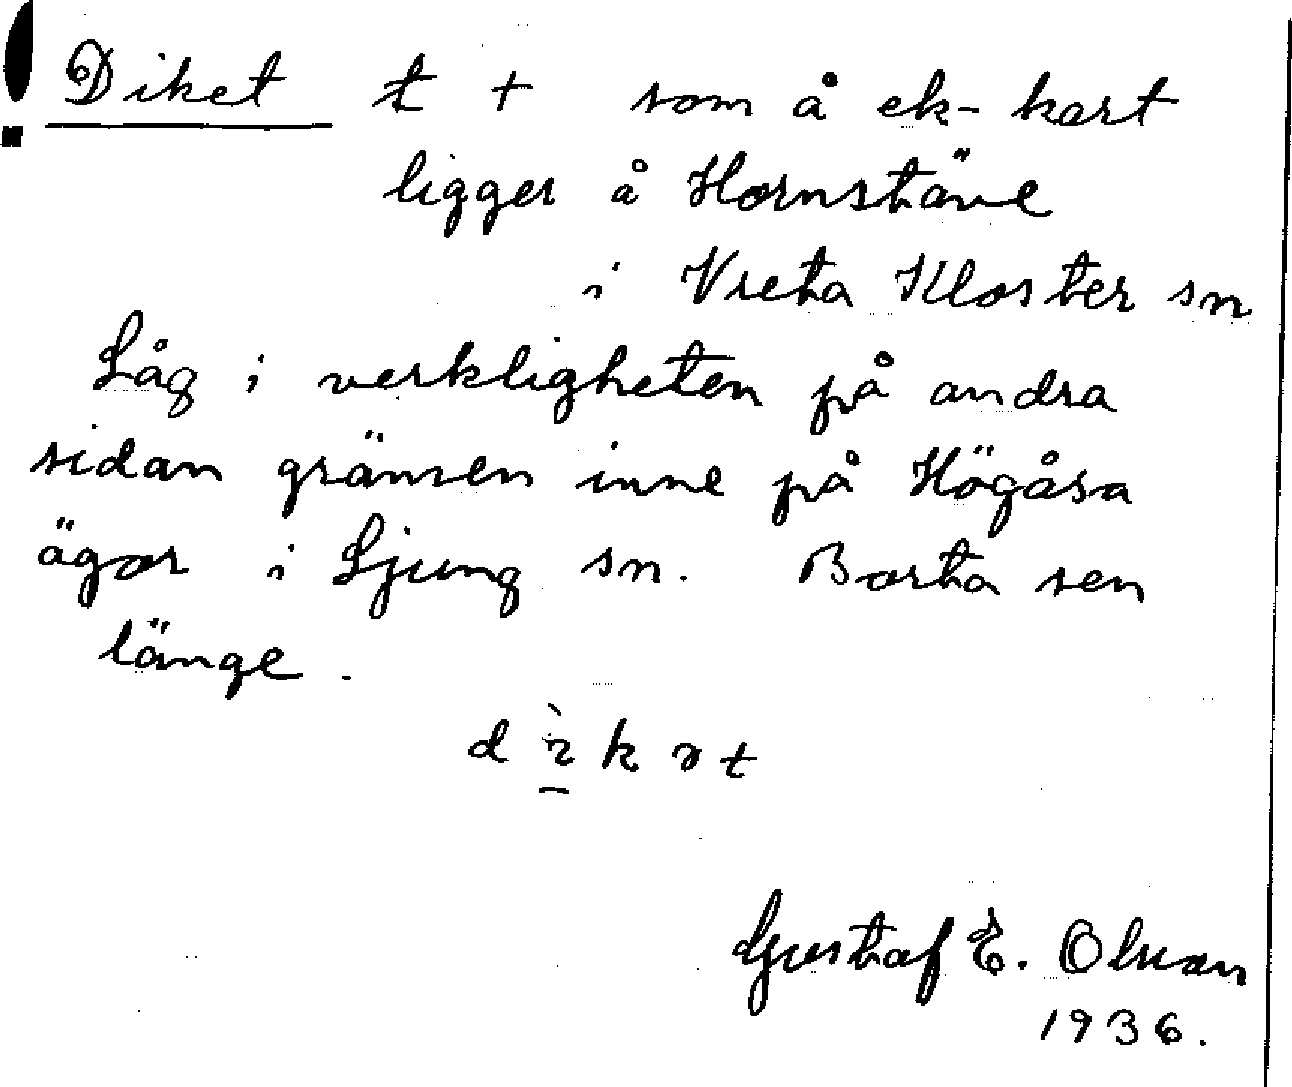 ! Diket t + som å ek-kart
ligger å Hornstäve
i Vreta Kloster sn
Låg i verkligheten på andra
sidan gränsen inne på Högåsa
ägor i Ljung sn. Borta sen
länge.
Gustaf E. Olson
1936.